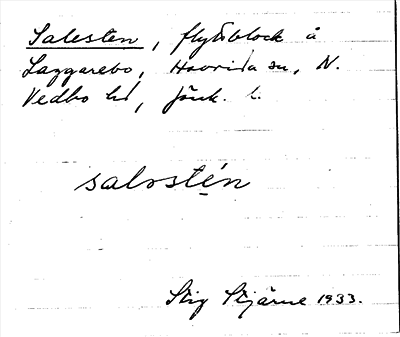 Salesten, flyttblock å
Laggarebo, Haurida sn, N.
Vedbo hd, Jönk. l.
salostén
Stig Stjärne 1933.